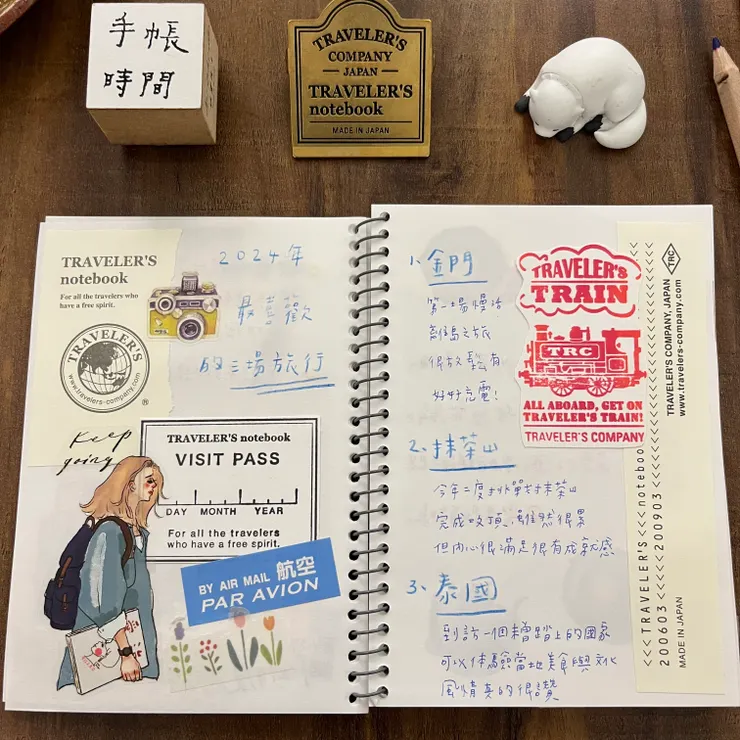 手帳
時間
TRAVELER'S
COMPANY
JAPAN
TRAVELER'S
notebook
MADE IN JAPAN
TRAVELER'S
notebook
For all the travelers who
have a free spirit.
TRAVELER'S
www.travelers-company.com
®
2024年
最喜歡
的三場旅行
Keep
going
TRAVELER'S notebook
VISIT PASS
DAY MONTH YEAR
For all the travelers
who have a free spirit.
BY AIR MAIL 航空
PAR AVION
1、金門
第一場慢活
離島之旅
很放鬆有
好好充電!
2、抹茶山
今年二度挑戰抹茶山
完成攻頂,雖然很累
但內心很滿足很有成就感
3、泰國
到訪一個棤踏上的國家
可以体驗當地美食與文化
風情真的很讚
TRAVELER'S
TRAIN
TRC
ALL ABOARD, GET ON
TRAVELER'S TRAIN!
TRAVELER'S COMPANY
<<<TRAVELER'S<<<notebook
200603 200903
MADE IN JAPAN
TRAVELER'S COMPANY, JAPAN
www.travelers-company.com
TRC